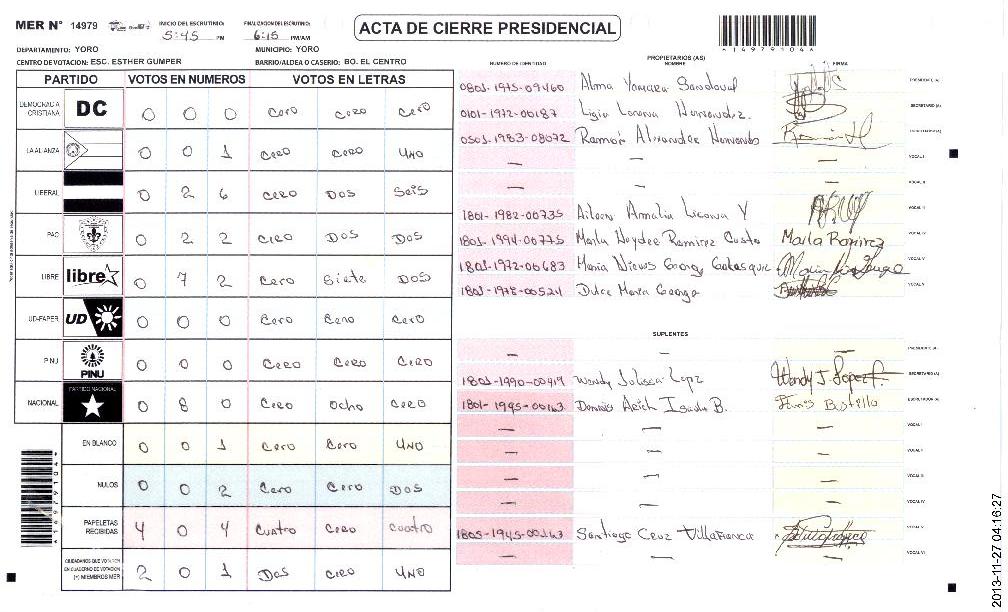 MER N° 14979
INICIO DEL ESCRUTINIO: 5:45 PM
FINALIZACION DEL ESCRUTINIO: 6:15 PM/AM
ACTA DE CIERRE PRESIDENCIAL
149791046
DEPARTAMENTO: YORO MUNICIPIO: YORO
CENTRO DE VOTACION: ESC. ESTHER GUMPER BARRIO/ALDEA O CASERIO: BO. EL CENTRO
PARTIDO VOTOS EN NUMEROS VOTOS EN LETRAS
DEMOCRACIA CRISTIANA DC 0 0 0 Cero Cero Cero
LA ALIANZA 0 0 1 Cero Cero UNO
LIBERAL 0 2 6 Cero DOS SeiS
PAC 0 2 2 Cero DOS DOS
LIBRE libre 0 7 2 Cero Siete DOS
UD-FAPER UD 0 0 0 Cero Cero Cero
PINU PINU 0 0 0 Cero Cero Cero
NACIONAL PARTIDO NACIONAL 0 8 0 Cero Ocho Cero
EN BLANCO 0 0 1 Cero Cero UNO
NULOS 0 0 2 Cero Cero DOS
PAPELETAS RECIBIDAS 4 0 4 Cuatro Cero Cuatro
CIUDADANOS QUE VOTARON EN CUADERNO DE VOTACION (+) MIEMBROS MER 2 0 1 Dos Cero UNO
PROPIETARIOS (AS)
NUMERO DE IDENTIDAD NOMBRE FIRMA
0801-1975-09460 Alma Yamara Sandoval PRESIDENTE (A)
0101-1972-00187 Ligia Lorena Hernandez. SECRETARIO (A)
0501-1983-08072 Ramón Alexander
— — — VOCAL I
— — — VOCAL II
1801-1982-00735 Amalia Y
1801-1994-00775 Marla Haydee Ramirez Marla Ramirez
1801-1972-00683 Maria Georgy
1801-1978-00524 Dulce Maria
SUPLENTES
— — —
1801-1990-00419 Wendy Julissa Lopez Wendy J. Lopez SECRETARIO (A)
1801-1995-00163 B. Bustillo
— — — VOCAL I
— — —
— — —
— — —
1805-1945-00163 Santiago Cruz Villafranca
— —
2013-11-27 04:16:27